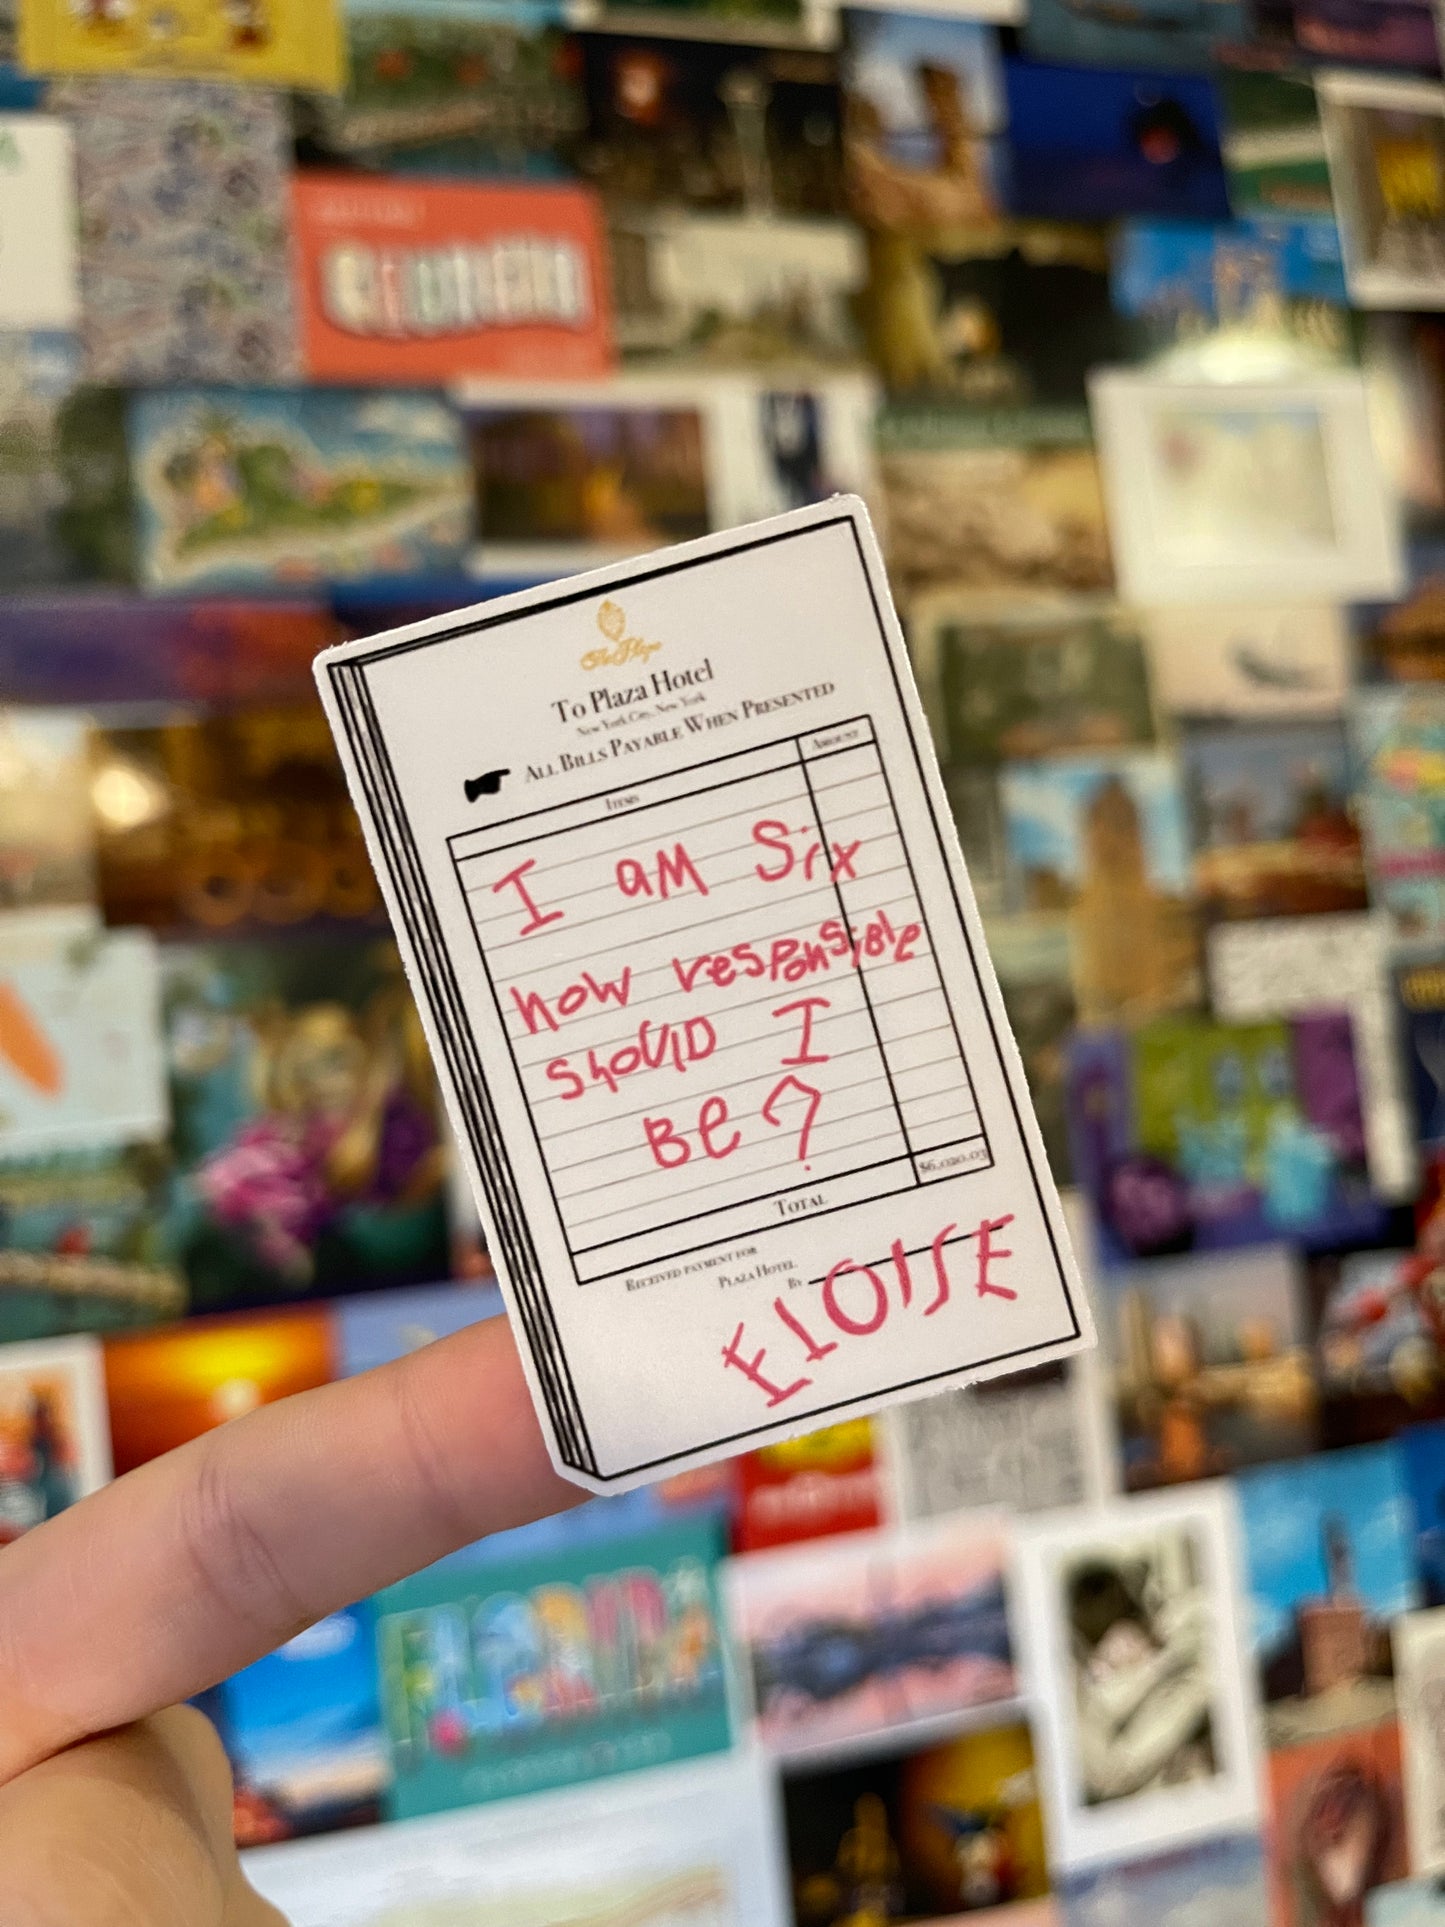 The Plaza
To Plaza Hotel
New York City, New York
ALL BILLS PAYABLE WHEN PRESENTED
ITEMS AMOUNT
I am Six
how responsible
should I
Be?
TOTAL $6,020.03
RECEIVED PAYMENT FOR
PLAZA HOTEL
BY
ElOISE
FLORIDA